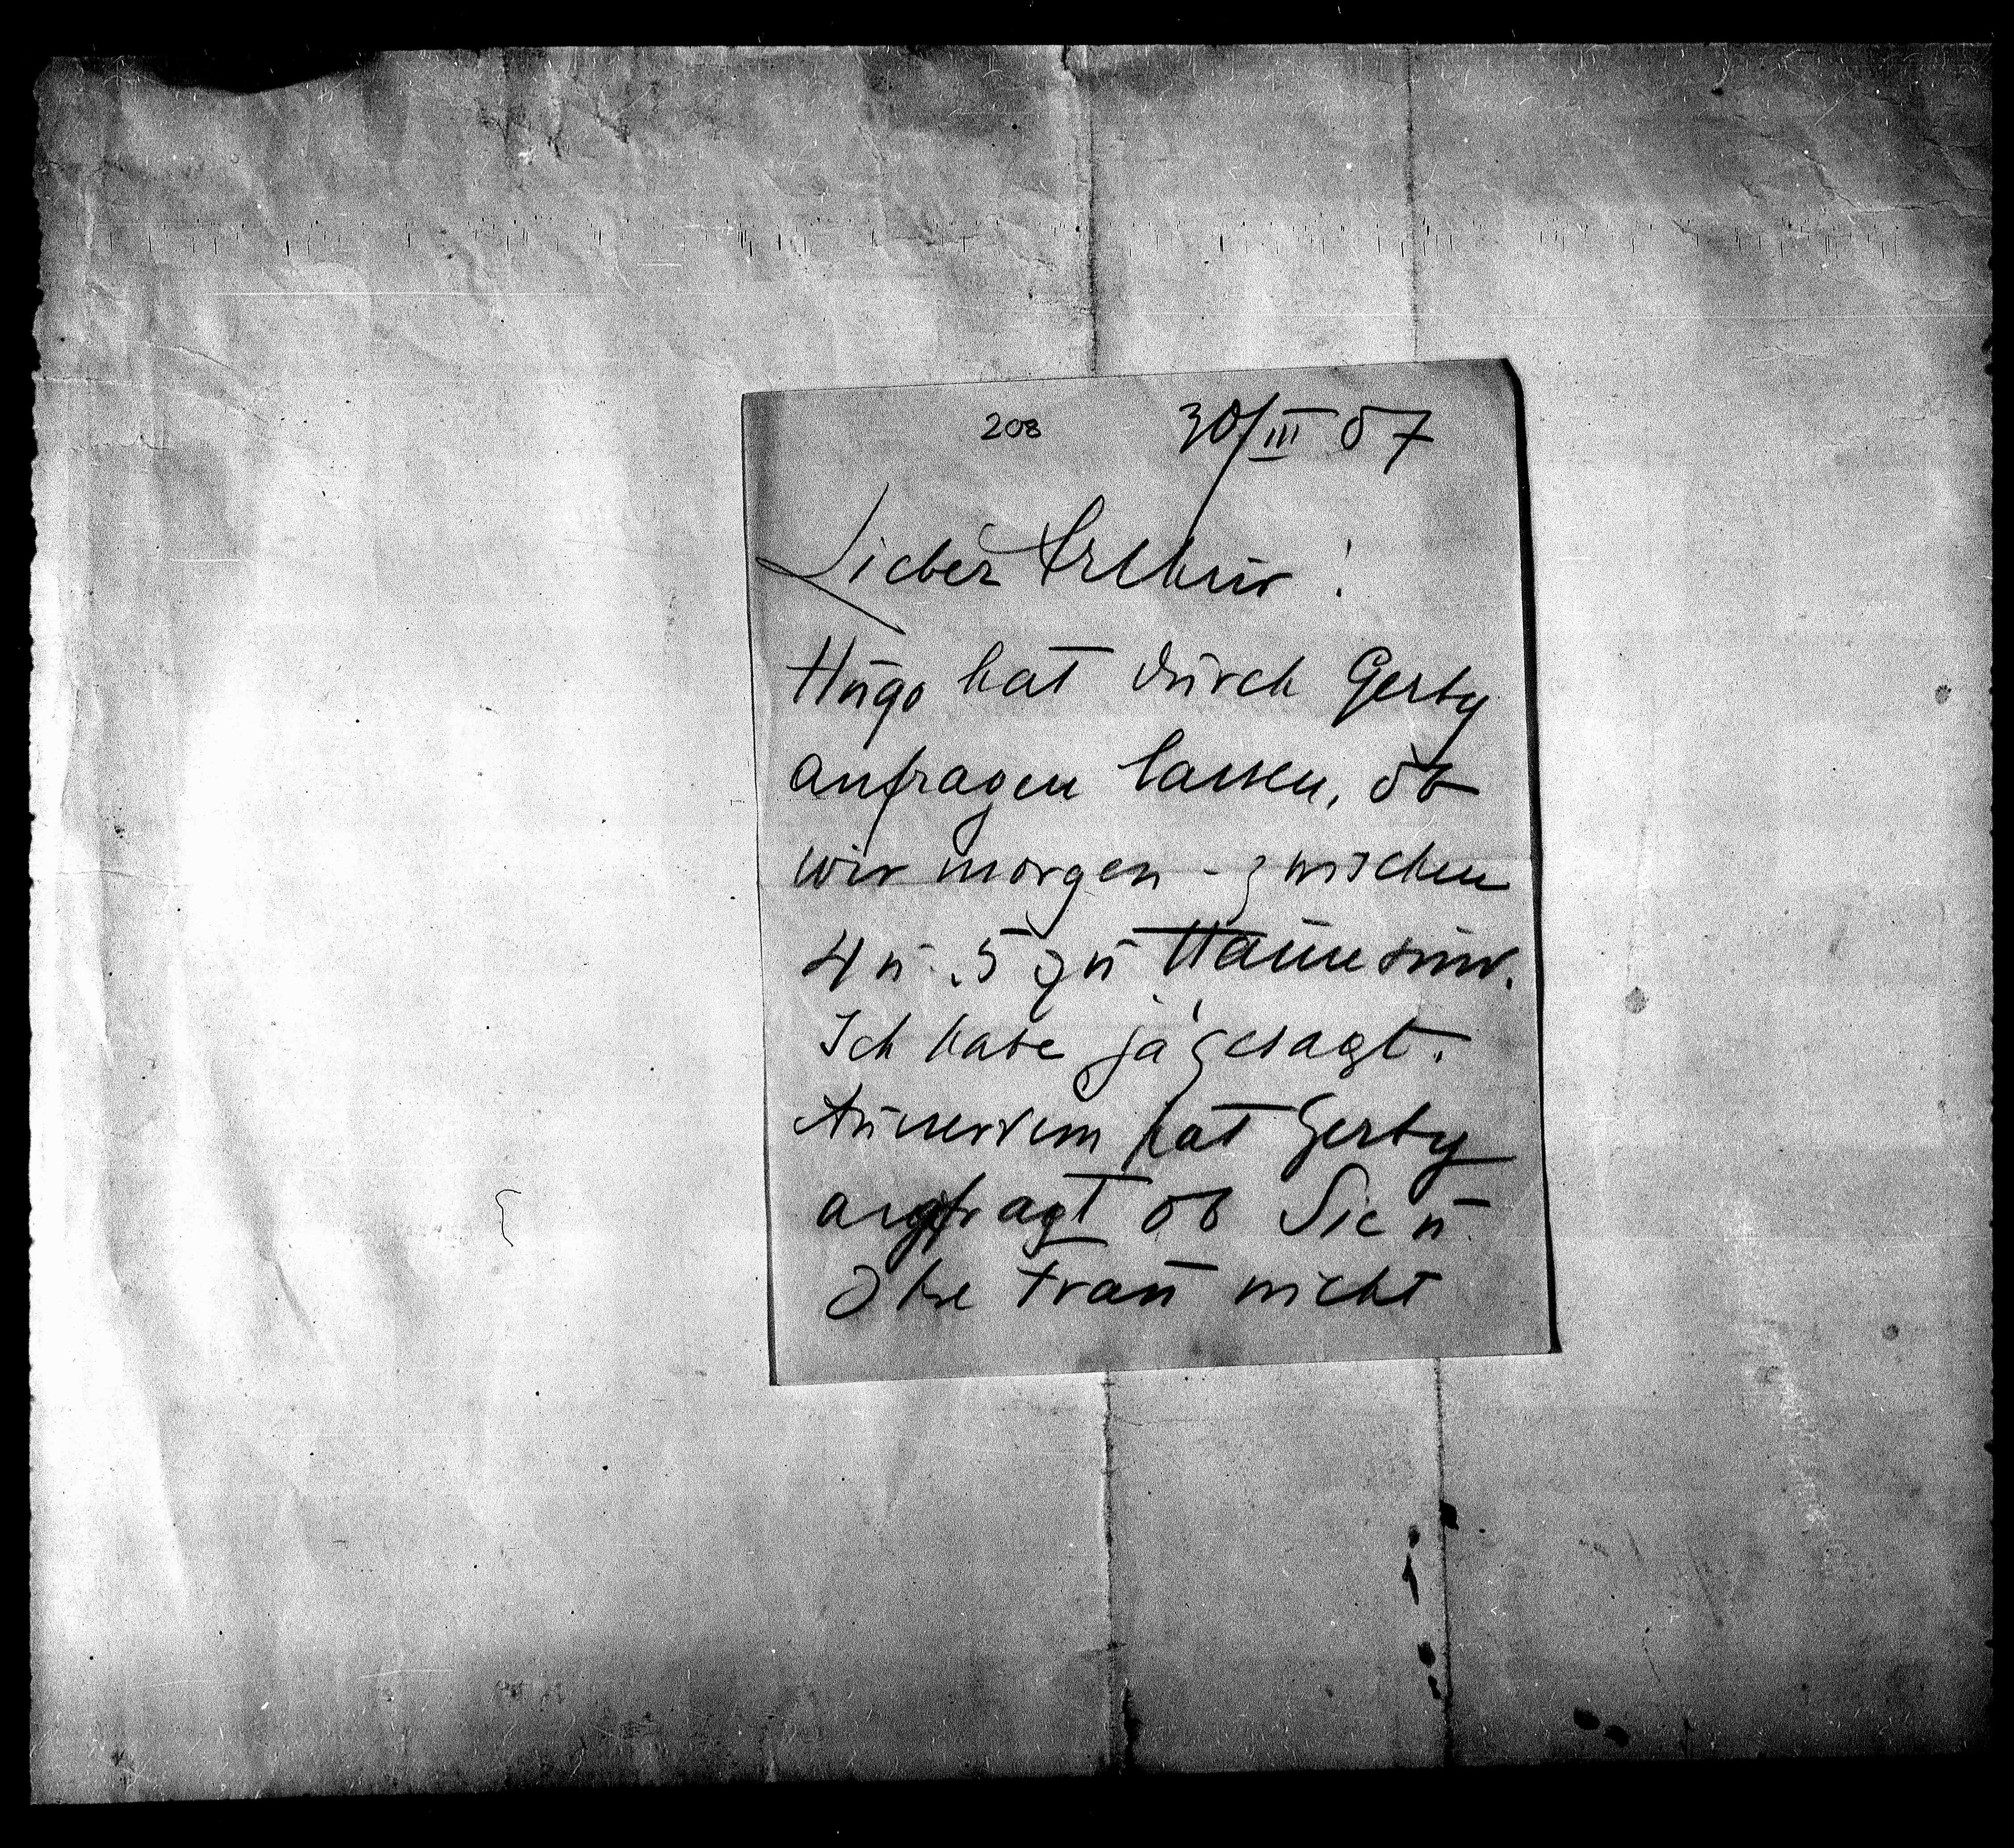 208 30/III 07
Lieber Arthur!
Hugo hat durch Gerty
anfragen lassen, ob
wir morgen - zwischen
4 u. 5 zu Hause sind.
Ich habe ja gesagt.
Ausserdem hat Gerty
angefragt ob Sie u.
Ihre Frau nicht